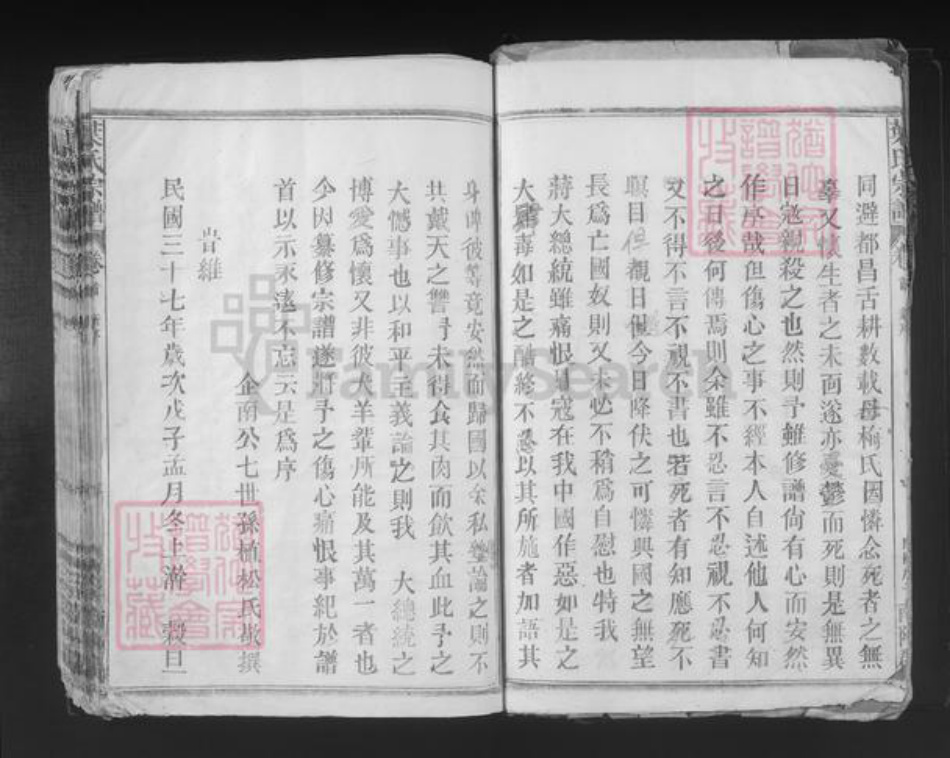 同避都昌舌耕數載母梅氏因憐念死者之無
辜又懷生者之未面遂亦憂鬱而死則是無異
日寇親殺之也然則予雖修譜尙有心而安然
作序哉但傷心之事不經本人自述他人何知
之日後何傳焉則余雖不忍言不忍視不忍書
又不得不言不視不書也若死者有知應死不
瞑目但觀日倭今日降伏之可憐興國之無望
長爲亡國奴則又未必不稍爲自慰也特我
蔣大總統雖痛恨日寇在我中國作惡如是之
大荼毒如是之酷終不忍以其所施者加諸其
身俾彼等竟安然而歸國以余私讐論之則不
共戴天之讐予未得食其肉而飲其血此予之
大憾事也以和平主義論之則我 大總統之
博愛爲懷又非彼犬羊輩所能及其萬一者也
今因纂修宗譜遂將予之傷心痛恨事紀於譜
首以示永遠不忘云是爲序
企南公七世孫植松氏敬撰
旹維
民國三十七年歲次戊子孟月冬上澣 穀旦
葉氏宗譜 卷
葉氏宗譜 卷